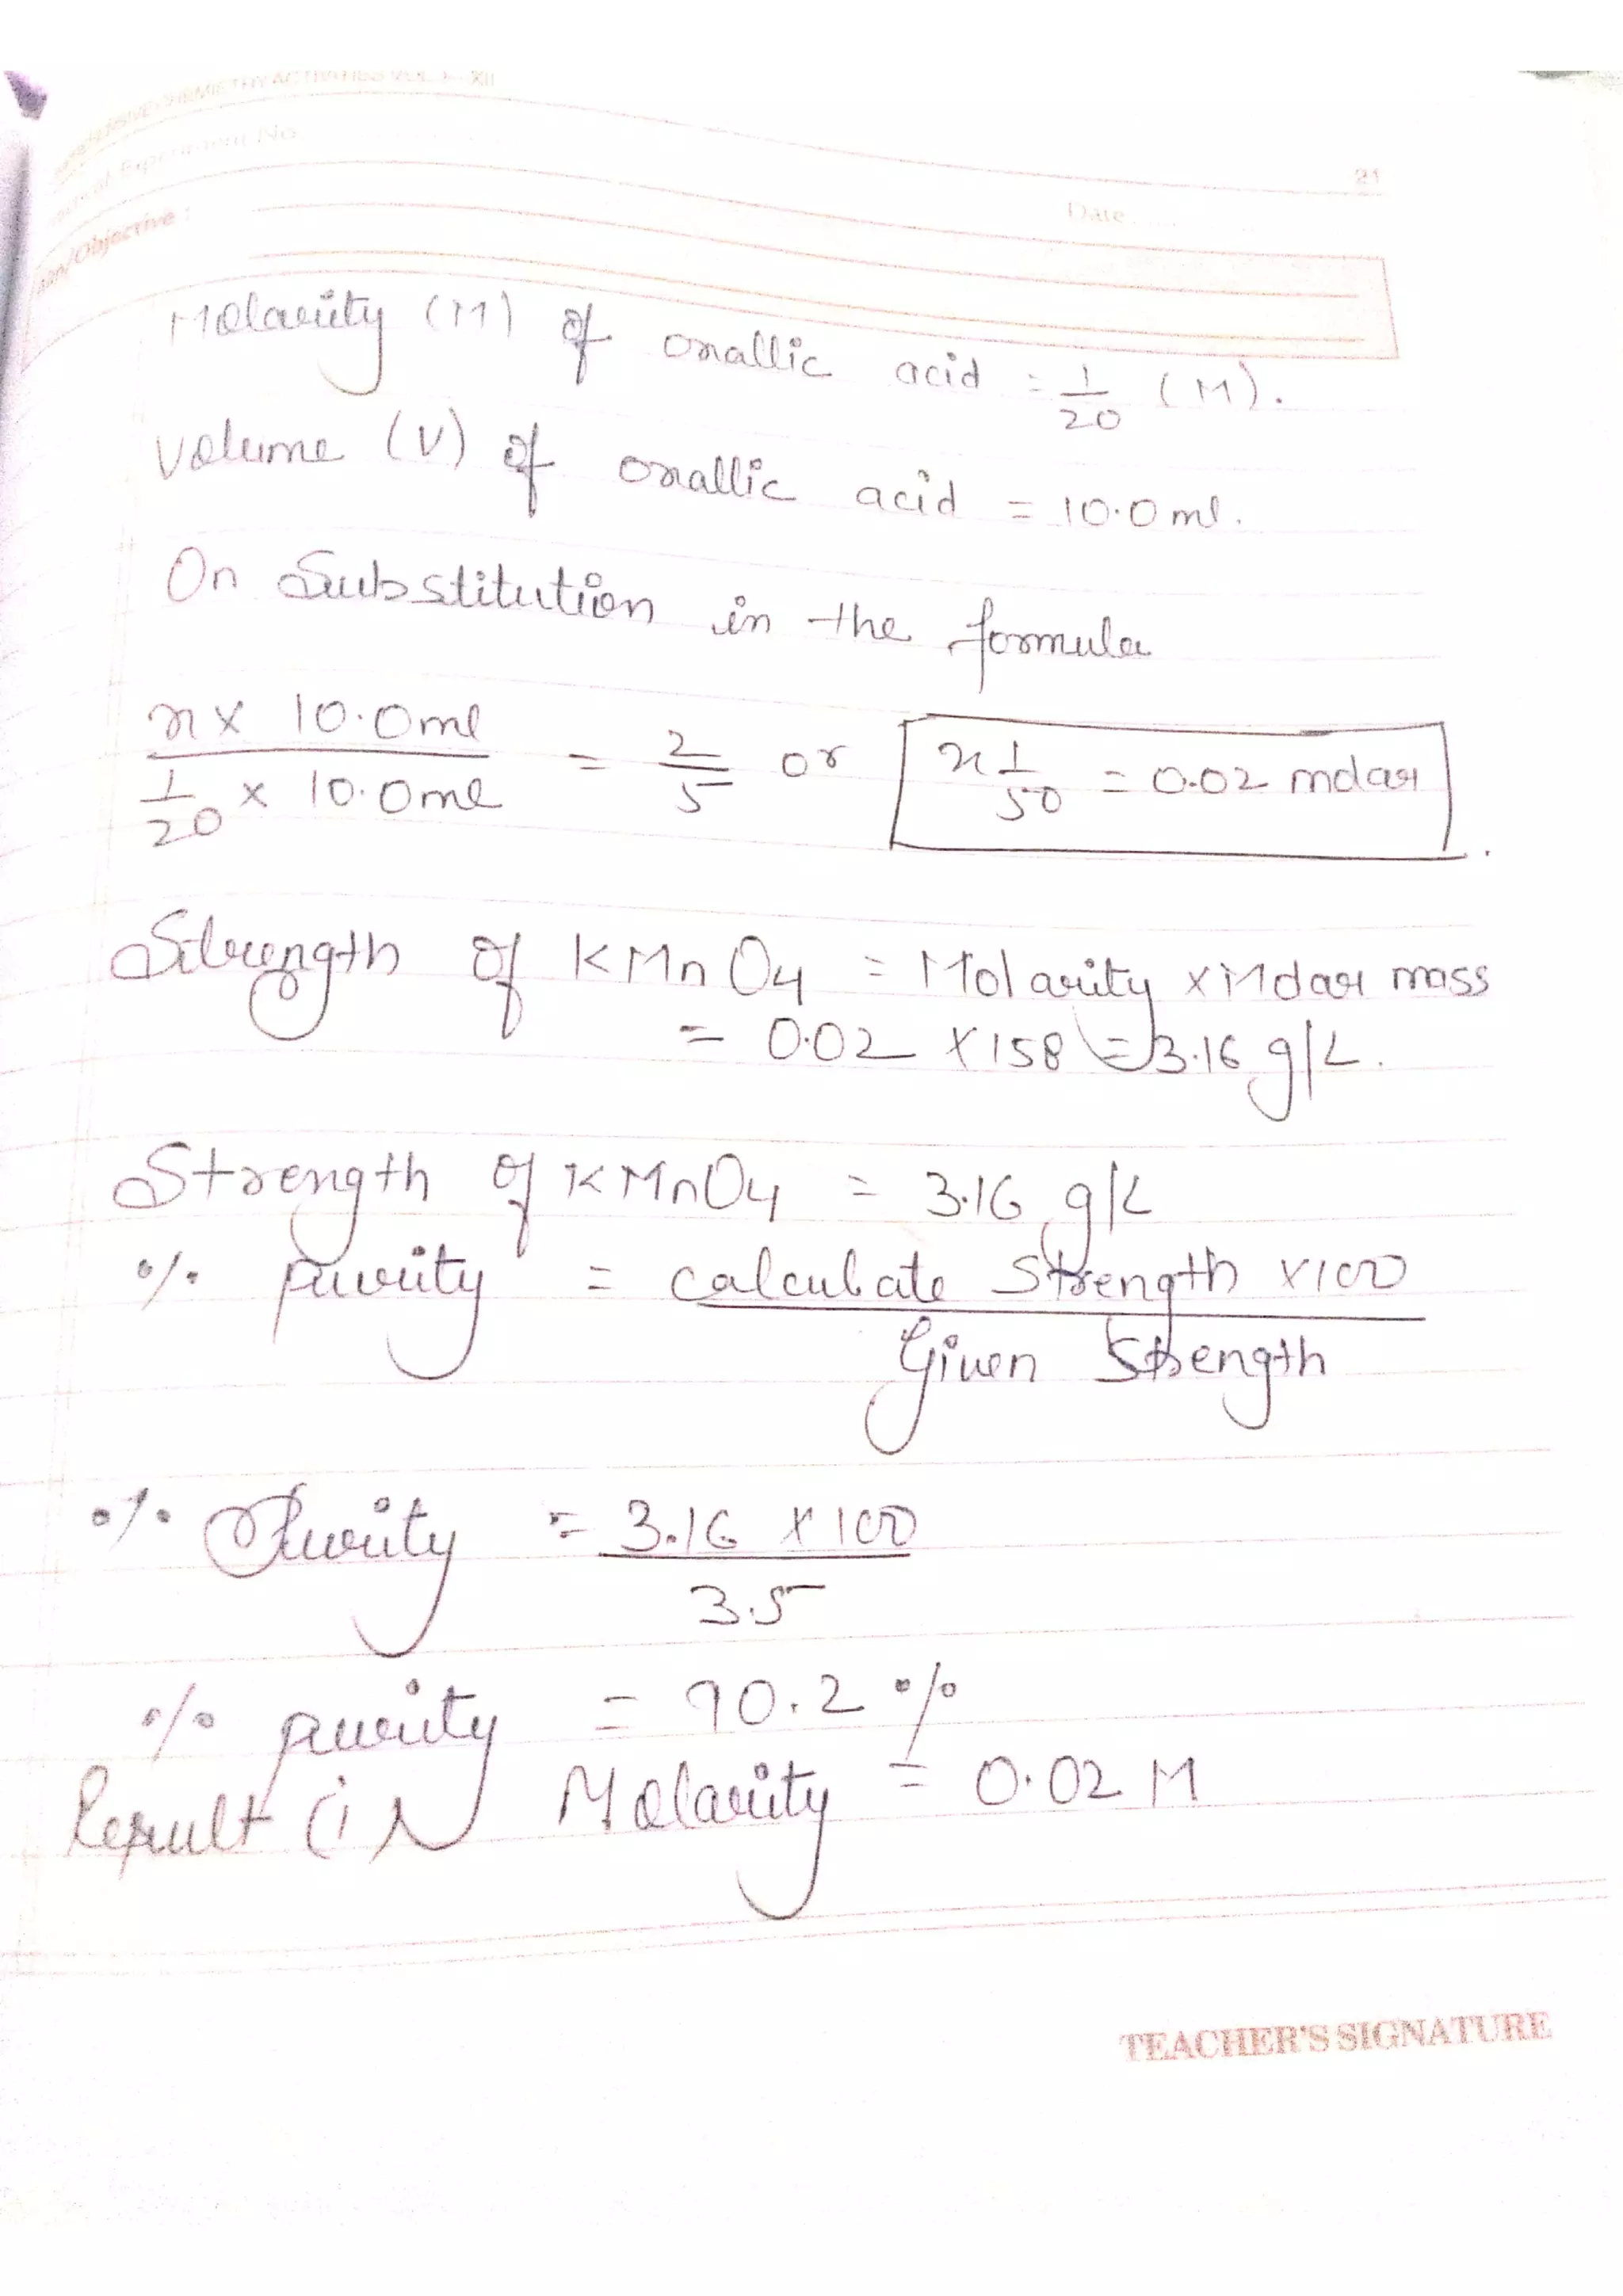 CHEMISTRY ACTIVITIES VOL. I-XII
21
Experiment No
Date
Aim/Objective :
Molarity (M) of oxallic acid = 1/20 (M).
Volume (V) of oxallic acid = 10.0 ml.
On Substitution in the formula
x × 10.0ml / 1/20 × 10.0ml = 2/5 or x 1/50 = 0.02 molar
Strength of KMnO4 = Molarity × Molar mass
= 0.02 × 158 = 3.16 g/L.
Strength of KMnO4 = 3.16 g/L
% purity = calculate Strength ×100 / Given Strength
% Purity = 3.16 × 100 / 3.5
% purity = 90.2 %
Result (i) Molarity = 0.02 M
TEACHER'S SIGNATURE